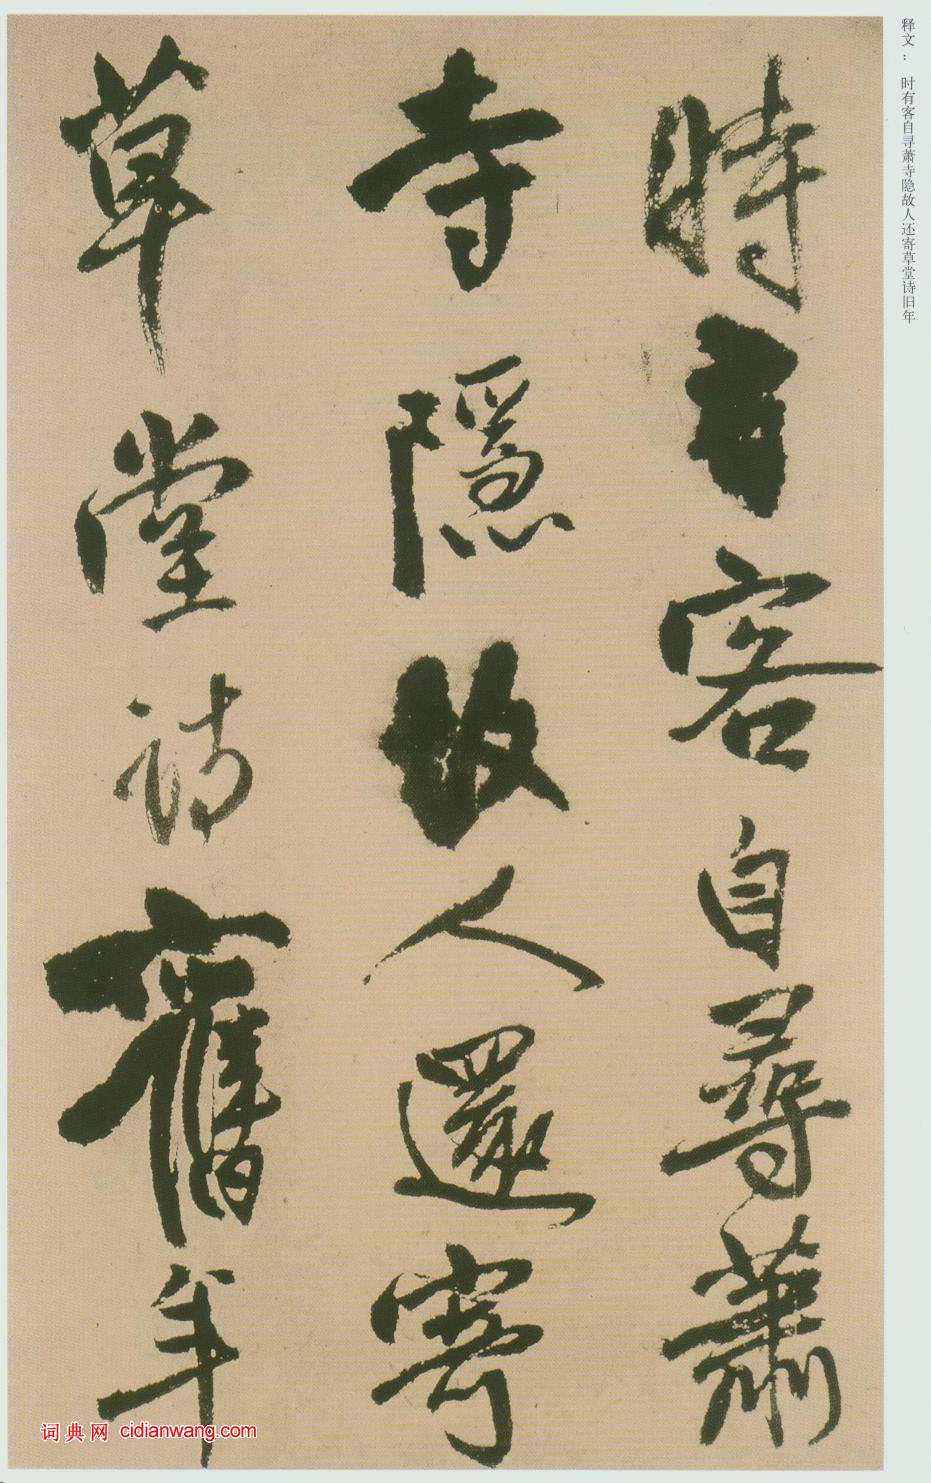 释文： 时有客自寻萧寺隐故人还寄草堂诗旧年
時有客自尋蕭
寺隱故人還寄
草堂詩舊年
词典网 cidianwang.com